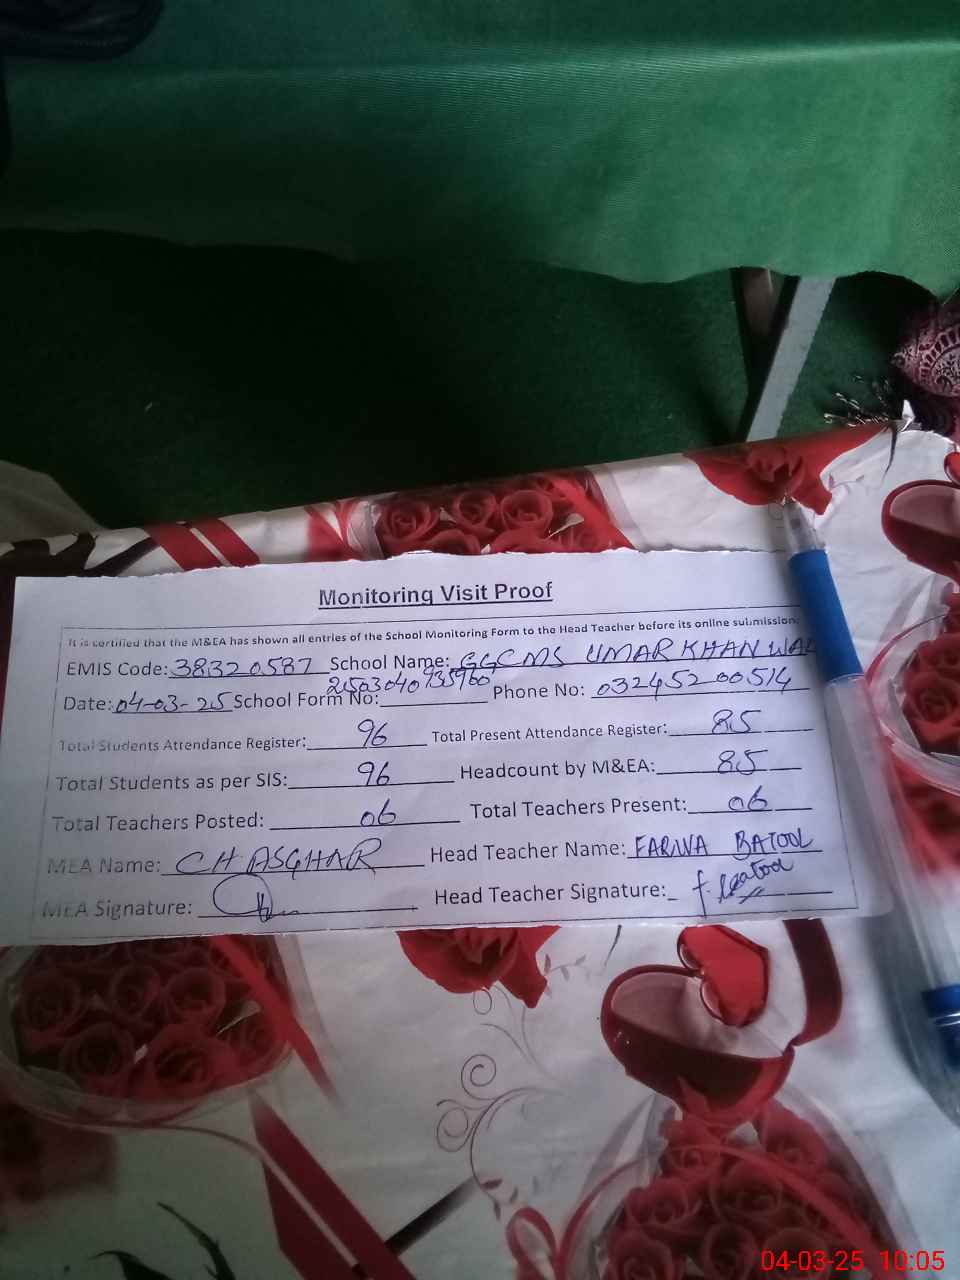 Monitoring Visit Proof
It is certified that the M&EA has shown all entries of the School Monitoring Form to the Head Teacher before its online submission.
EMIS Code: 38320587 School Name: GGCMS UMAR KHAN WAL
Date: 04-03-25 School Form No: 2503040935960 Phone No: 03245200514
Total Students Attendance Register: 96 Total Present Attendance Register: 85
Total Students as per SIS: 96 Headcount by M&EA: 85
Total Teachers Posted: 06 Total Teachers Present: 06
MEA Name: CH ASGHAR Head Teacher Name: FARWA BATOOL
MEA Signature: Head Teacher Signature: f. batool
04-03-25 10:05